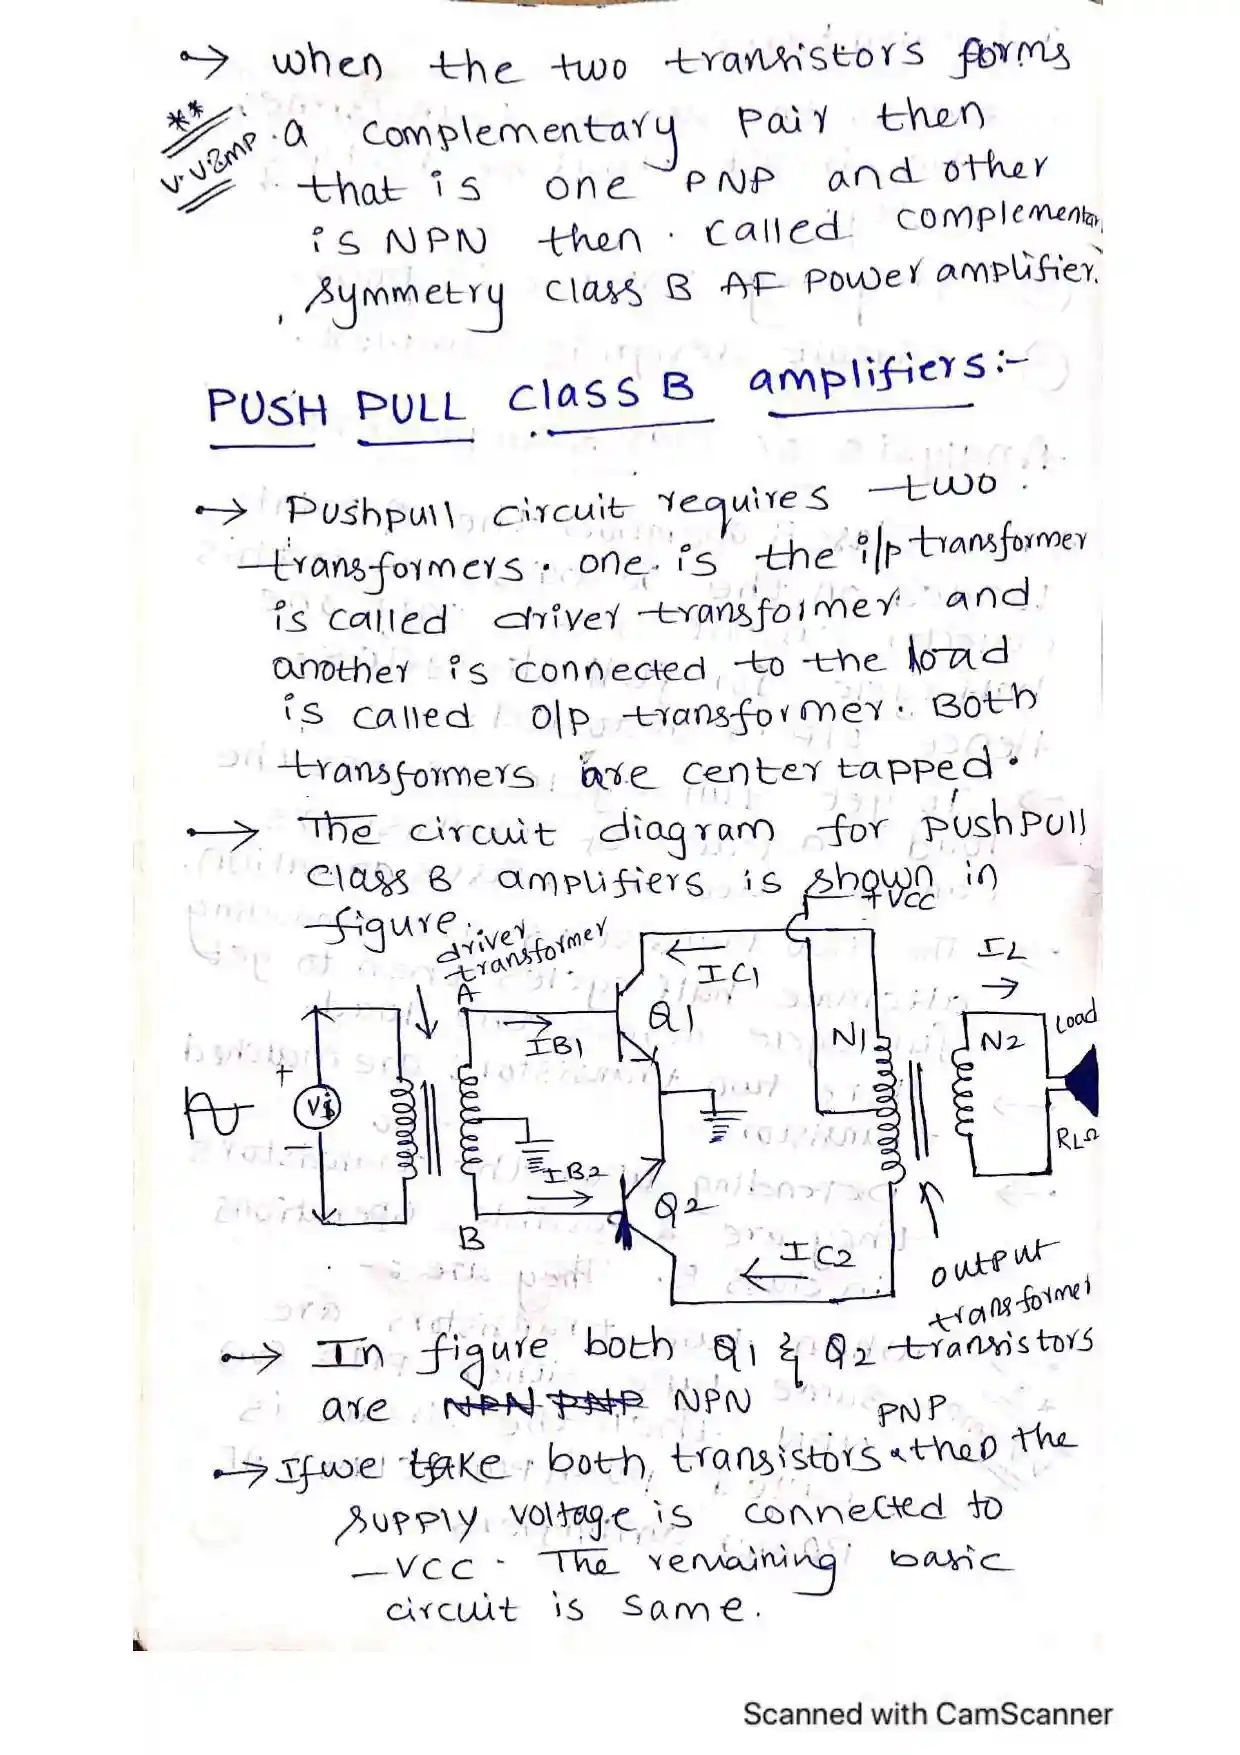 → when the two transistors forms
** a complementary pair then
V.V.Imp that is one PNP and other
is NPN then called complementar
symmetry class B AF power amplifier.
PUSH PULL class B amplifiers:-
→ Pushpull circuit requires two
transformers. one is the i/p transformer
is called driver transformer and
another is connected to the load
is called o/p transformer. Both
transformers are center tapped.
→ The circuit diagram for pushpull
class B amplifiers is shown in
figure.
driver
transformer
+VCC
IC1
IL
→
Load
A
Q1
IB1
N1
N2
+
Vi
−
RLΩ
IB2
Q2
B
IC2
output
transformer
→ In figure both Q1 & Q2 transistors
are NPN PNP NPN
PNP
→ If we take both transistors then the
supply voltage is connected to
−VCC. The remaining basic
circuit is same.
Scanned with CamScanner